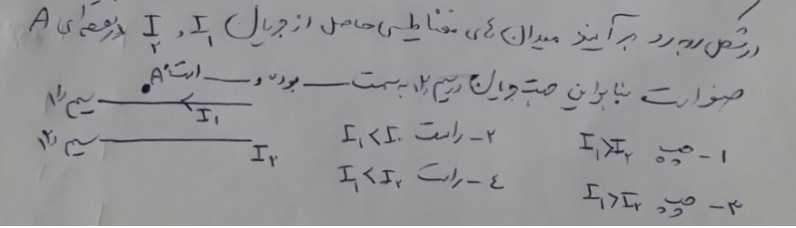 در شکل روبرو برآیند میدان های مغناطیسی حاصل از جریان I₁ و I₂ در نقطه ای A
صفر است بنابراین جهت جریان در سیم (۲) به سمت ــــ بوده و ــــ است.
A
سیم (۱) I₁
سیم (۲) I₂
۱- چپ I₁>I₂
۲- راست I₁<I₂
۳- چپ I₁>I₂
٤- راست I₁<I₂